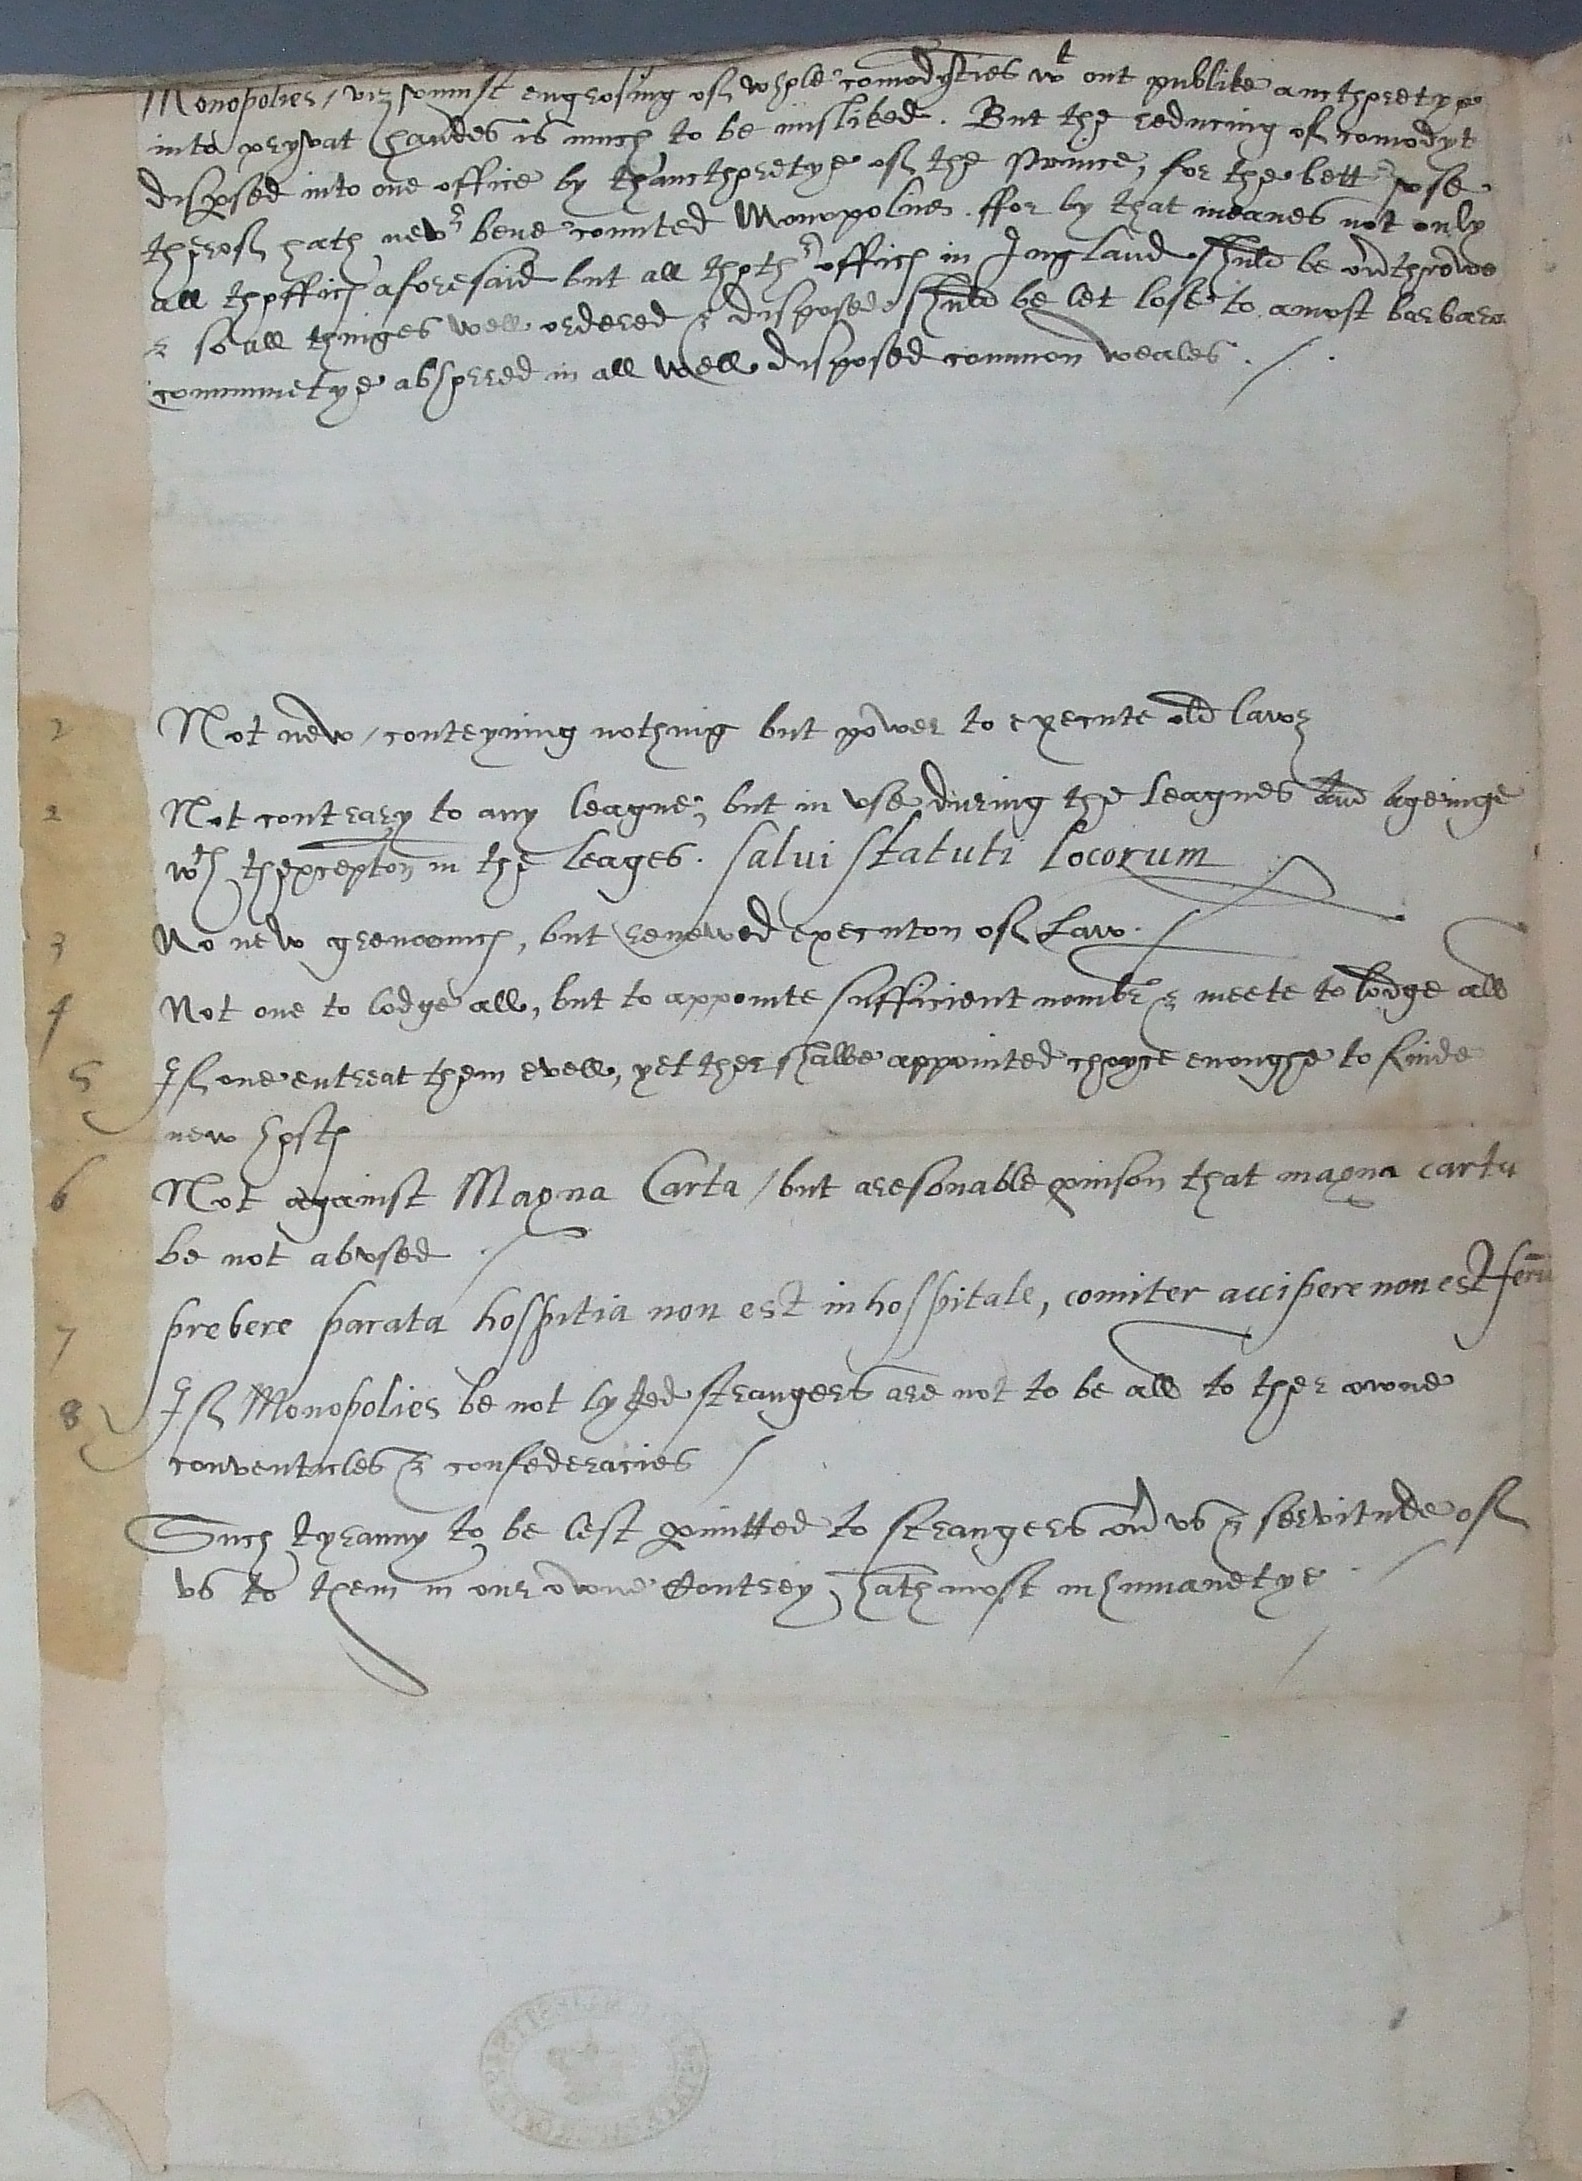 Monopolies / viz vniust engrosing of whole comodyties wt out publike aucthoretye
into pryvat handes is much to be misliked. But the reducing of comodyt
dispersed into one office by thaucthoretye of the Prince, for the bettr
therof hath nevr bene counted Monopolies. ffor by that meanes not only
all thoffices aforesaid but all thothr offices in Ingland shuld be overthrowe
& so all thinges well ordered & disposed shuld be let lose to a most barbaro
communetye abhorred in all well disposed common weales.
1 Not new / conteyning nothing but power to execute old lawes
2 Not contrary to any league, but in vse during the leagues and agreinge
wth thexcepton in the leages. salui statuti locorum
3 No new grevounce, but renewed executon of Law.
4 Not one to lodge all, but to appointe sufficient nombr & meete to lodge all
5 If one entreat them evell, yet ther shalbe appointed choyce enoughe to finde
new hostes
6 Not against Magna Carta / but a resonable prouison that magna carta
be not abvsed
7 prebere parata hospitia non est inhospitale, comiter accipere non est feru
8 If Monopolies be not lyked strangers are not to be all to ther owne
conventicles & confederacies
Such tyranny to be lest permitted to strangers over vs & servitude of
vs to them in our owne Contrey, hath most inhumanetye